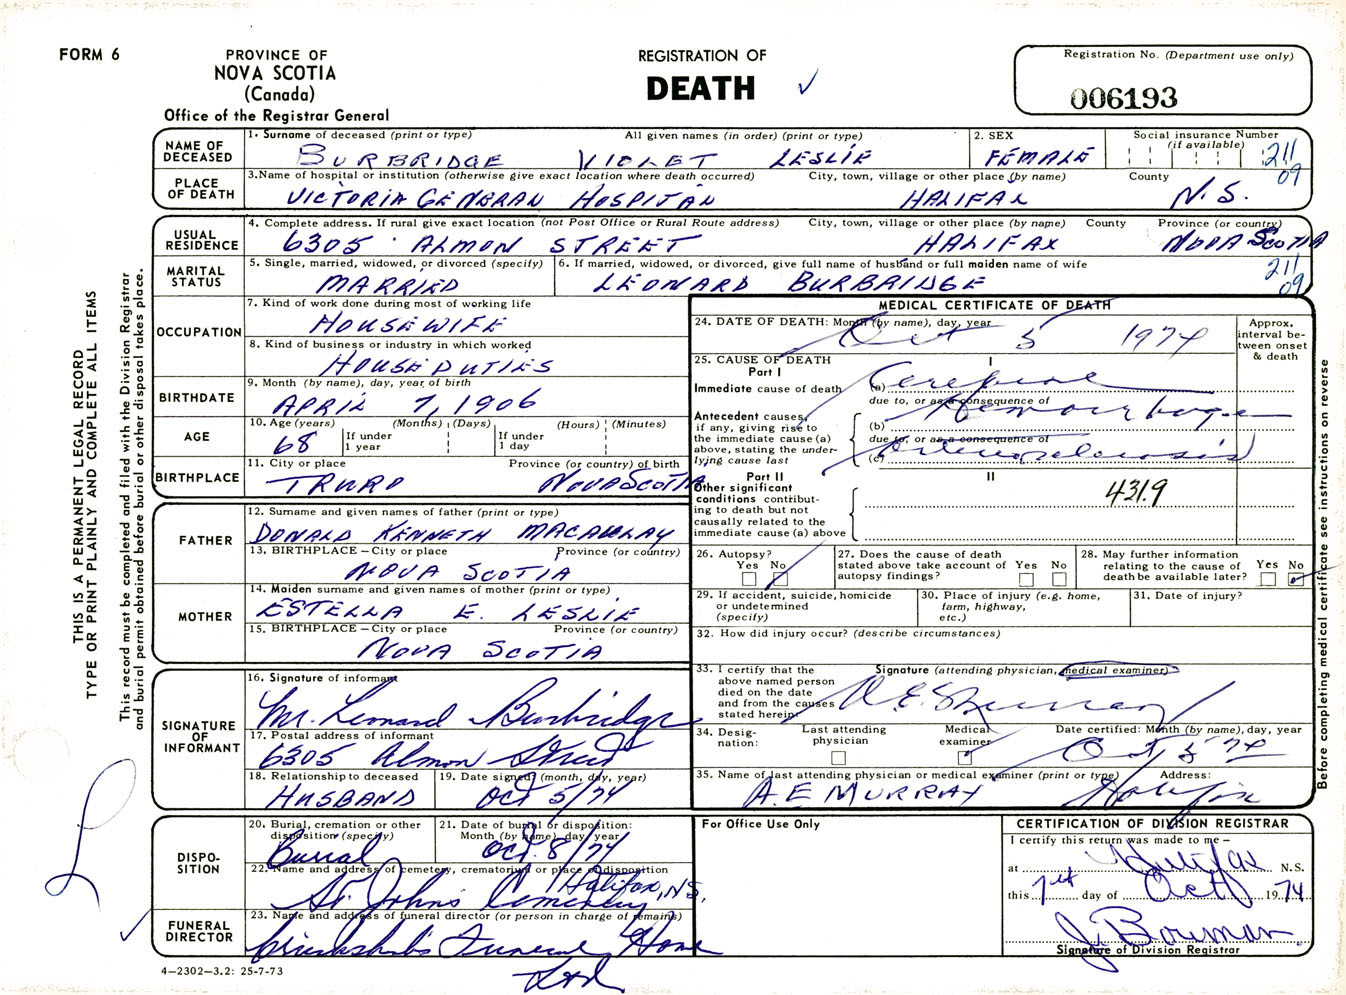 FORM 6
PROVINCE OF
NOVA SCOTIA
(Canada)
Office of the Registrar General
REGISTRATION OF
DEATH
Registration No. (Department use only)
006193
NAME OF DECEASED
1. Surname of deceased (print or type) All given names (in order) (print or type)
BURBRIDGE VIOLET LESLIE
2. SEX
FEMALE
Social insurance Number
(if available)
211
09
PLACE OF DEATH
3. Name of hospital or institution (otherwise give exact location where death occurred) City, town, village or other place (by name) County
VICTORIA GENERAL HOSPITAL HALIFAX N.S.
USUAL RESIDENCE
4. Complete address. If rural give exact location (not Post Office or Rural Route address) City, town, village or other place (by name) County Province (or country)
6305 ALMON STREET HALIFAX NOVA SCOTIA
MARITAL STATUS
5. Single, married, widowed, or divorced (specify)
MARRIED
6. If married, widowed, or divorced, give full name of husband or full maiden name of wife
LEONARD BURBRIDGE
211
09
OCCUPATION
7. Kind of work done during most of working life
HOUSEWIFE
8. Kind of business or industry in which worked
HOUSE DUTIES
BIRTHDATE
9. Month (by name), day, year of birth
APRIL 7, 1906
AGE
10. Age (years) (Months) (Days) (Hours) (Minutes)
68 If under 1 year If under 1 day
BIRTHPLACE
11. City or place Province (or country) of birth
TRURO NOVA SCOTIA
FATHER
12. Surname and given names of father (print or type)
DONALD KENNETH MACAULAY
13. BIRTHPLACE – City or place Province (or country)
NOVA SCOTIA
MOTHER
14. Maiden surname and given names of mother (print or type)
ESTELLA E. LESLIE
15. BIRTHPLACE – City or place Province (or country)
NOVA SCOTIA
SIGNATURE OF INFORMANT
16. Signature of informant
Mr. Leonard Burbridge
17. Postal address of informant
6305 Almon Street
18. Relationship to deceased
HUSBAND
19. Date signed (month, day, year)
Oct 5/74
DISPO-
SITION
20. Burial, cremation or other disposition (specify)
Burial
21. Date of burial or disposition: Month (by name), day, year
Oct. 8/74
22. Name and address of cemetery, crematorium or place of disposition
St. John's Cemetery Halifax, N.S.
FUNERAL DIRECTOR
23. Name and address of funeral director (or person in charge of remains)
Cruikshanks Funeral Home
Ltd
4—2302—3.2: 25-7-73
MEDICAL CERTIFICATE OF DEATH
24. DATE OF DEATH: Month (by name), day, year
Oct 5 1974
Approx. interval between onset & death
25. CAUSE OF DEATH
Part I
I
Immediate cause of death
(a) Cerebral
due to, or as a consequence of
Hemorrhage
Antecedent causes, if any, giving rise to the immediate cause (a) above, stating the underlying cause last
(b)
due to, or as a consequence of
(c) Arteriosclerosis
Part II
II
Other significant conditions contributing to death but not causally related to the immediate cause (a) above
431.9
26. Autopsy?
Yes No
27. Does the cause of death stated above take account of autopsy findings?
Yes No
28. May further information relating to the cause of death be available later?
Yes No
29. If accident, suicide, homicide or undetermined (specify)
30. Place of injury (e.g. home, farm, highway, etc.)
31. Date of injury?
32. How did injury occur? (describe circumstances)
33. I certify that the above named person died on the date and from the causes stated herein:
Signature (attending physician, medical examiner)
A. E. Murray
34. Designation:
Last attending physician
Medical examiner
Date certified: Month (by name), day, year
Oct 5 74
35. Name of last attending physician or medical examiner (print or type) Address:
A. E MURRAY Halifax
For Office Use Only
CERTIFICATION OF DIVISION REGISTRAR
I certify this return was made to me –
at Halifax N.S.
this 7th day of Oct 1974
J. Bowman
Signature of Division Registrar
THIS IS A PERMANENT LEGAL RECORD
TYPE OR PRINT PLAINLY AND COMPLETE ALL ITEMS
This record must be completed and filed with the Division Registrar
and burial permit obtained before burial or other disposal takes place.
Before completing medical certificate see instructions on reverse